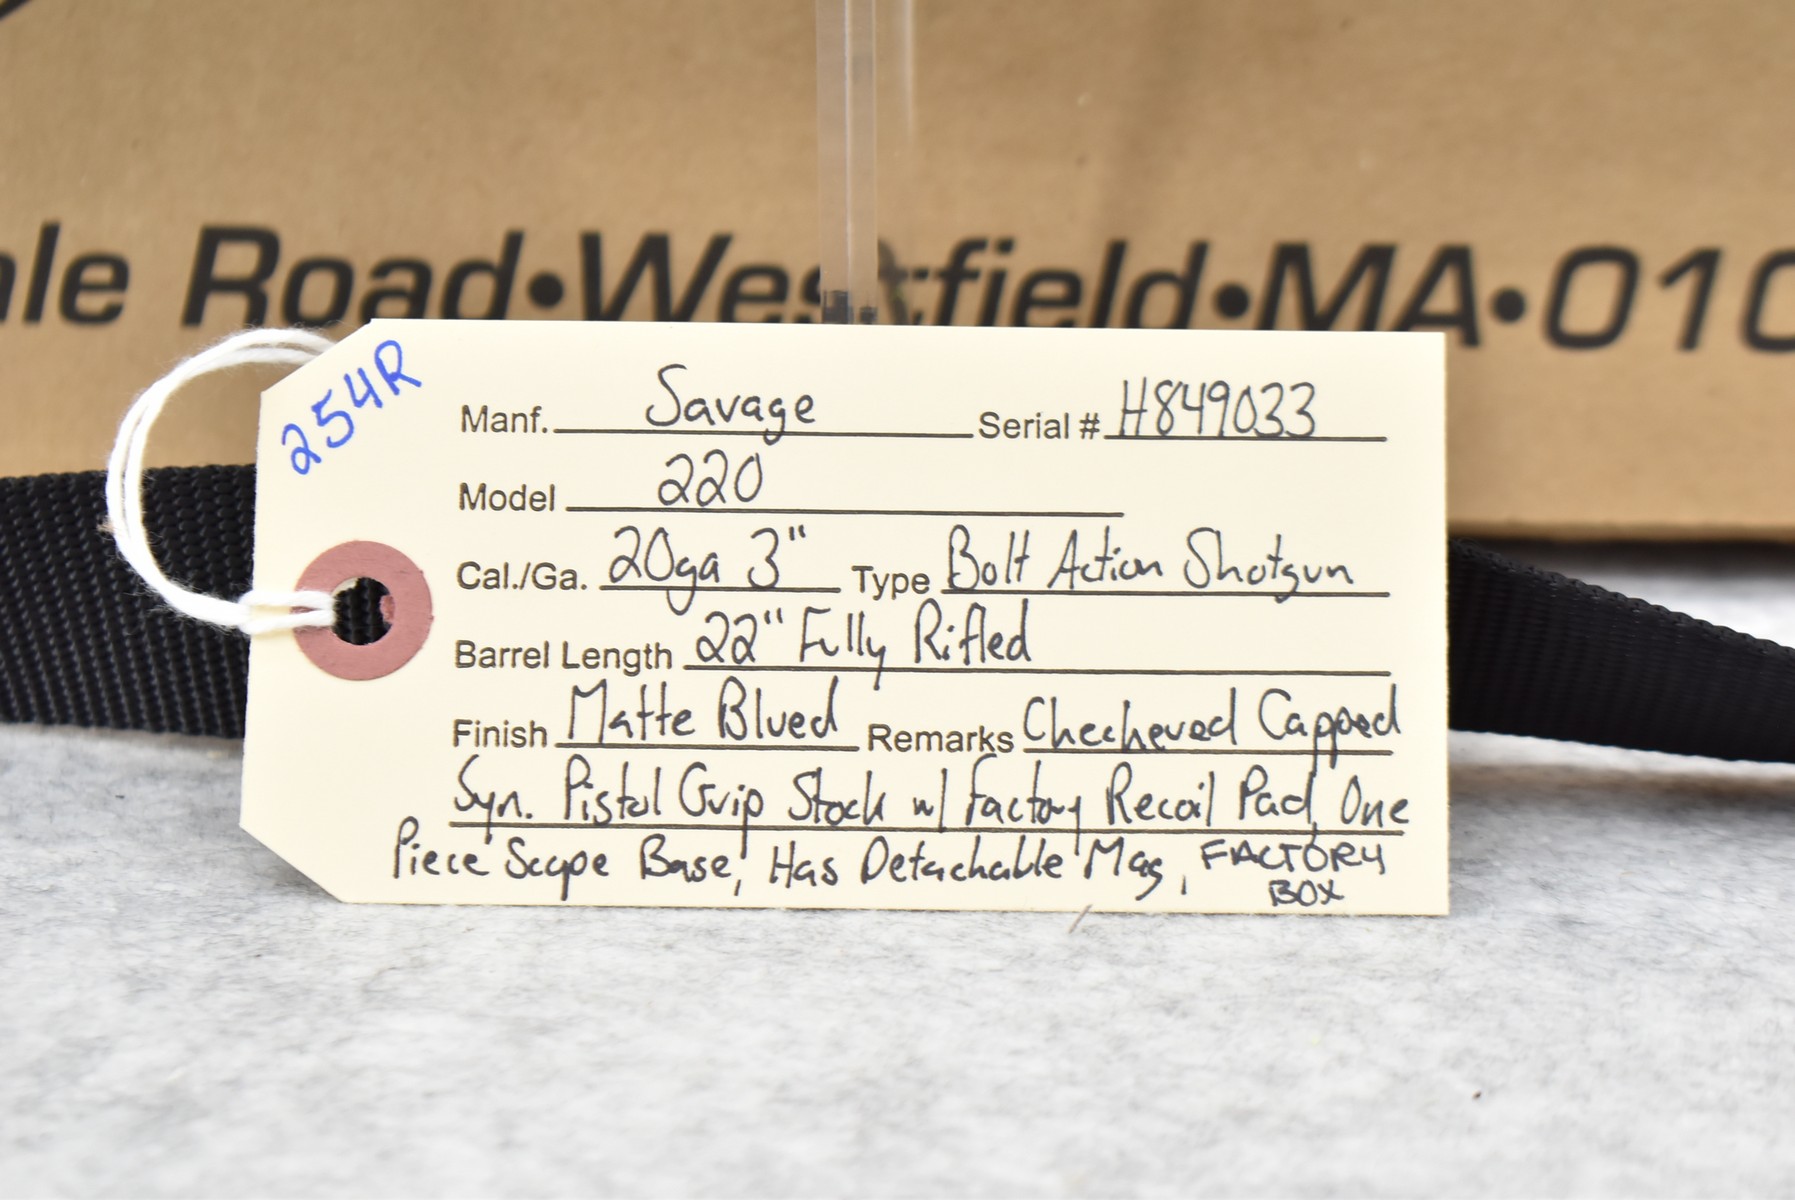 ale Road•Westfield•MA•010
254R
Manf. Savage Serial # H849033
Model 220
Cal./Ga. 20ga 3" Type Bolt Action Shotgun
Barrel Length 22" Fully Rifled
Finish Matte Blued Remarks Checkered Capped
Syn. Pistol Grip Stock w/ Factory Recoil Pad, One
Piece Scope Base, Has Detachable Mag, FACTORY
BOX